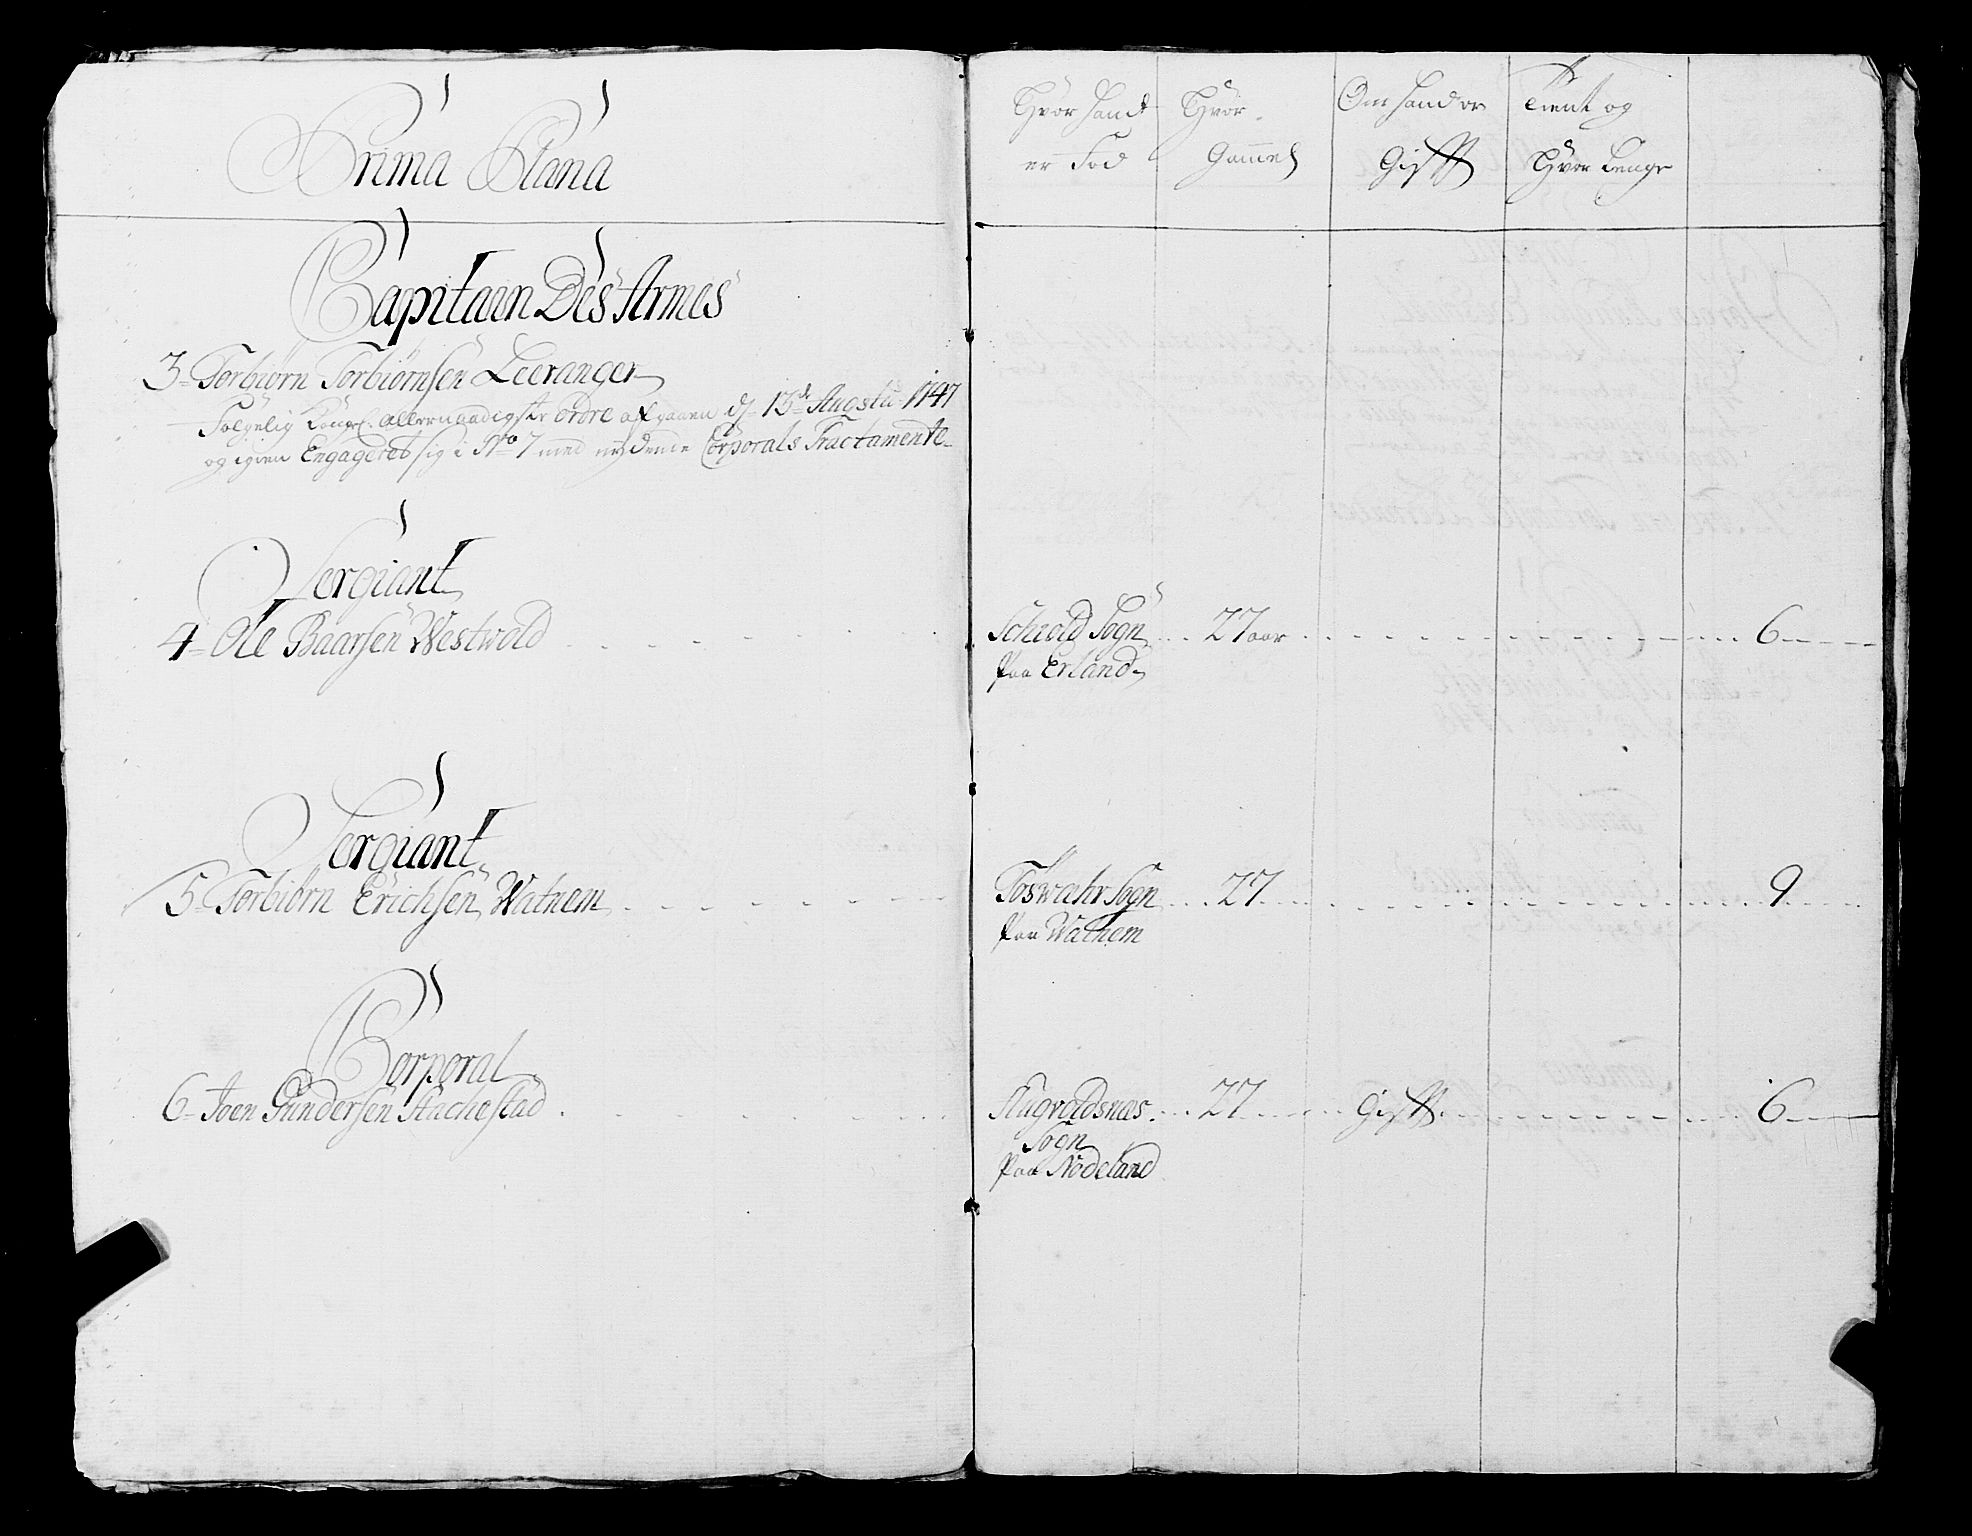 Prima Plana
Capitaen Des Armes
3 Torbiørn Torbiørnsen Leeranger
Følgelig Kongl. allernaadigste ordre afgaaen d 13de Augstii 1747
og igien Engageret sig i No 7 med nydende Corporals Tractamente
Sergiant
4 Ole Baarsen Westwold
Sergiant
5 Torbiørn Erichsen Watnem
Corporal
6 Joen Gundersen Hachestad
Hvor hand er Fød
Hvor Gammel
Om hand er Gifft
Tient og Hvor Lenge
Schiold Sogn 27 aar 6
Paa Erland
Toswahr Sogn 27 9
Paa Watnem
Augvoldsnæs 27 Gifft 6
Sogn
Paa Nodeland